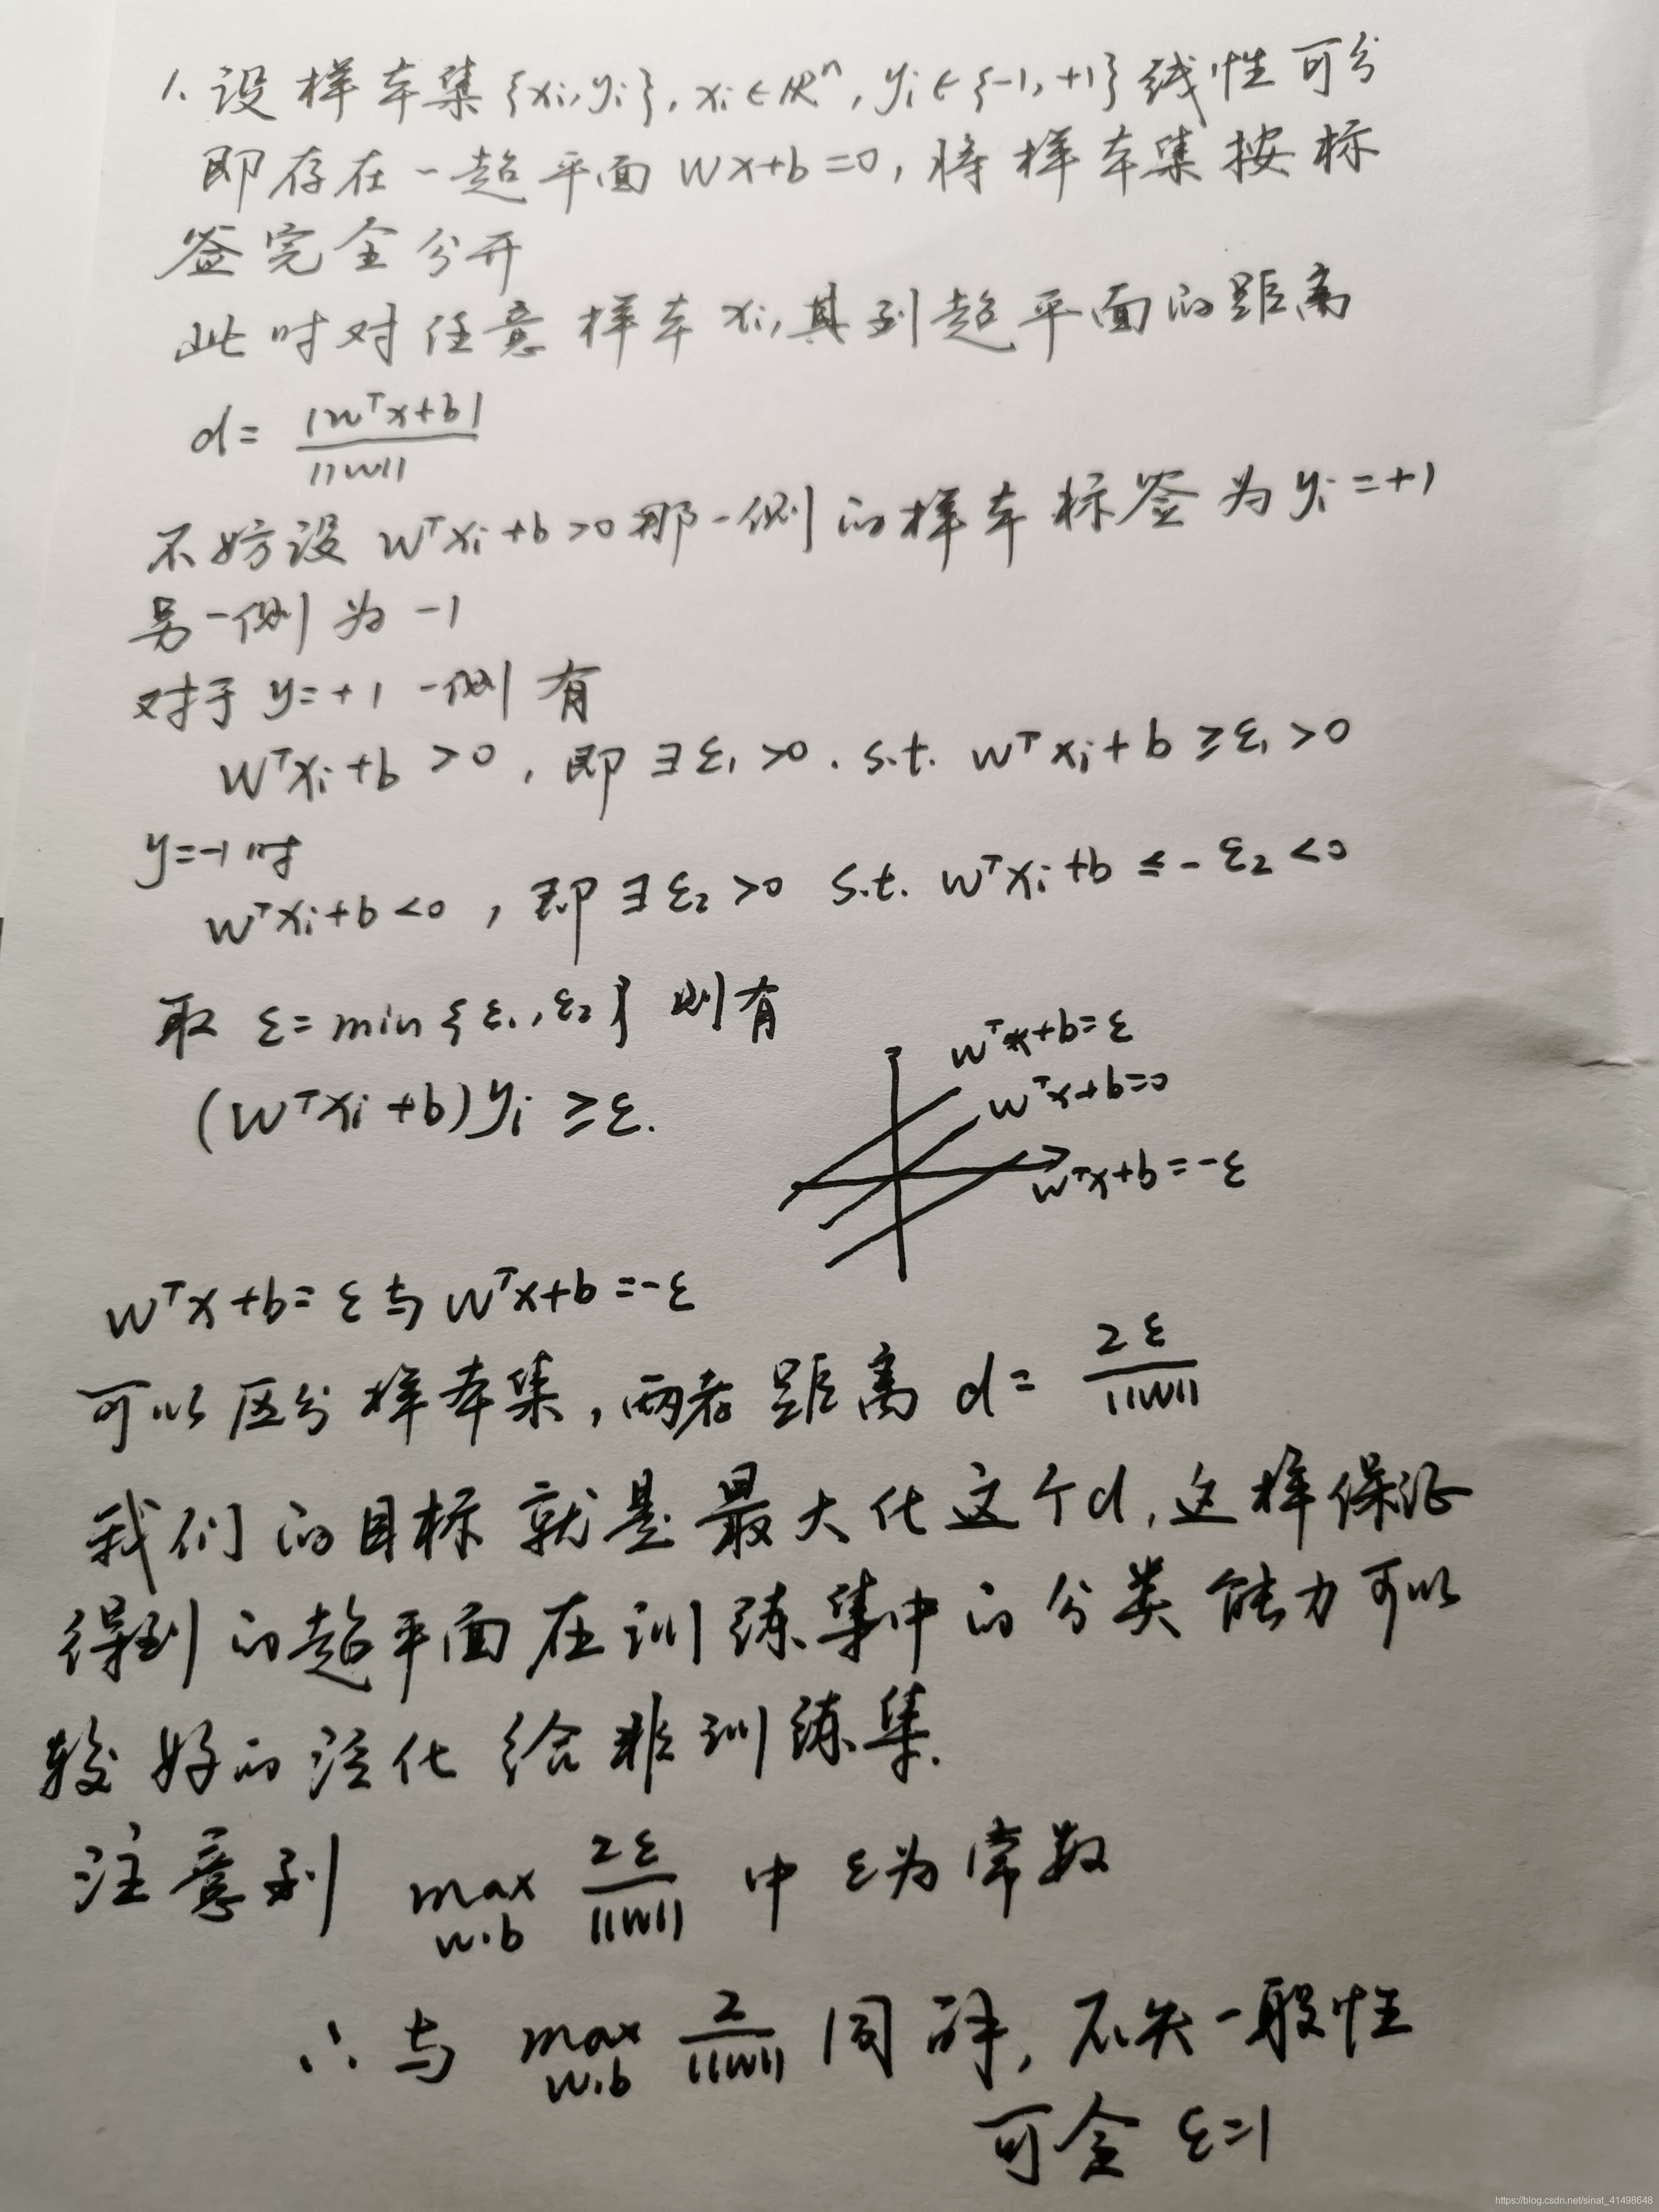 1. 设样本集{xi,yi}, xi∈ℝⁿ, yi∈{-1,+1}线性可分
即存在一超平面 wx+b=0, 将样本集按标
签完全分开
此时对任意样本xi,其到超平面的距离
d= |wᵀx+b| / ||w||
不妨设 wᵀxi+b>0 那一侧的样本标签为 yi=+1
另一侧为 -1
对于 y=+1 一侧有
wᵀxi+b >0 , 即 ∃ε₁>0 . s.t. wᵀxi+b ≥ε₁ >0
y=-1时
wᵀxi+b<0 , 即∃ε₂>0 s.t. wᵀxi+b ≤-ε₂<0
取 ε=min{ε₁,ε₂} 则有
(wᵀxi+b)yi ≥ε.
wᵀx+b=ε
wᵀx+b=0
wᵀx+b=-ε
wᵀx+b=ε与wᵀx+b=-ε
可以区分样本集,两者距离 d= 2ε / ||w||
我们的目标就是最大化这个d,这样保证
得到的超平面在训练集中的分类能力可以
较好的泛化给非训练集.
注意到 max w.b 2ε / ||w|| 中 ε为常数
∴与 max w.b 2 / ||w|| 同解, 不失一般性
可令 ε=1
https://blog.csdn.net/sinat_41498648